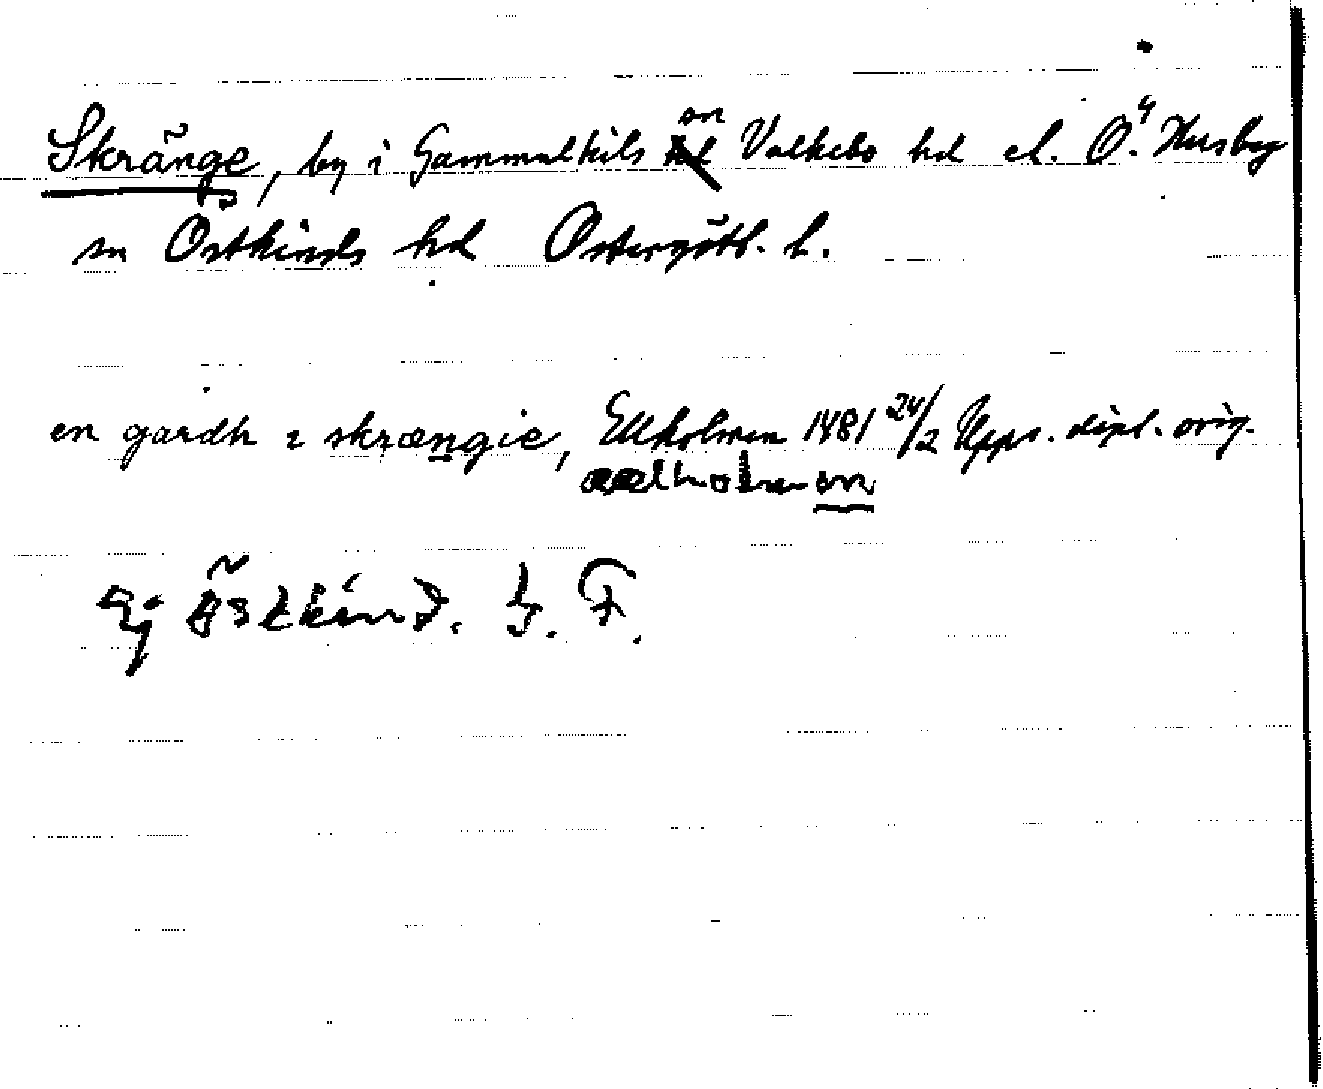 Skränge, by i Gammalkils sn Valkebo hd el. Ö. Husby
sn Östkinds hd Östergötl. l.
en gardh i skrængie, Ekholmen 1481 24/2 Upps. dipl. orig.
Ej Östkind.